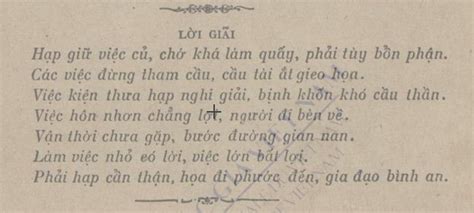 LỜI GIẢI
Hạp giữ việc củ, chớ khá làm quấy, phải tùy bồn phận.
Các việc đừng tham cầu, cầu tài ắt gieo họa.
Việc kiện thưa hạp nghi giải, bịnh khốn khó cầu thần.
Việc hôn nhơn chẳng lợi, người đi bèn về.
Vận thời chưa gặp, bước đường gian nan.
Làm việc nhỏ có lời, việc lớn bất lợi.
Phải hạp cần thận, họa đi phước đến, gia đạo bình an.
VIỆT NAM